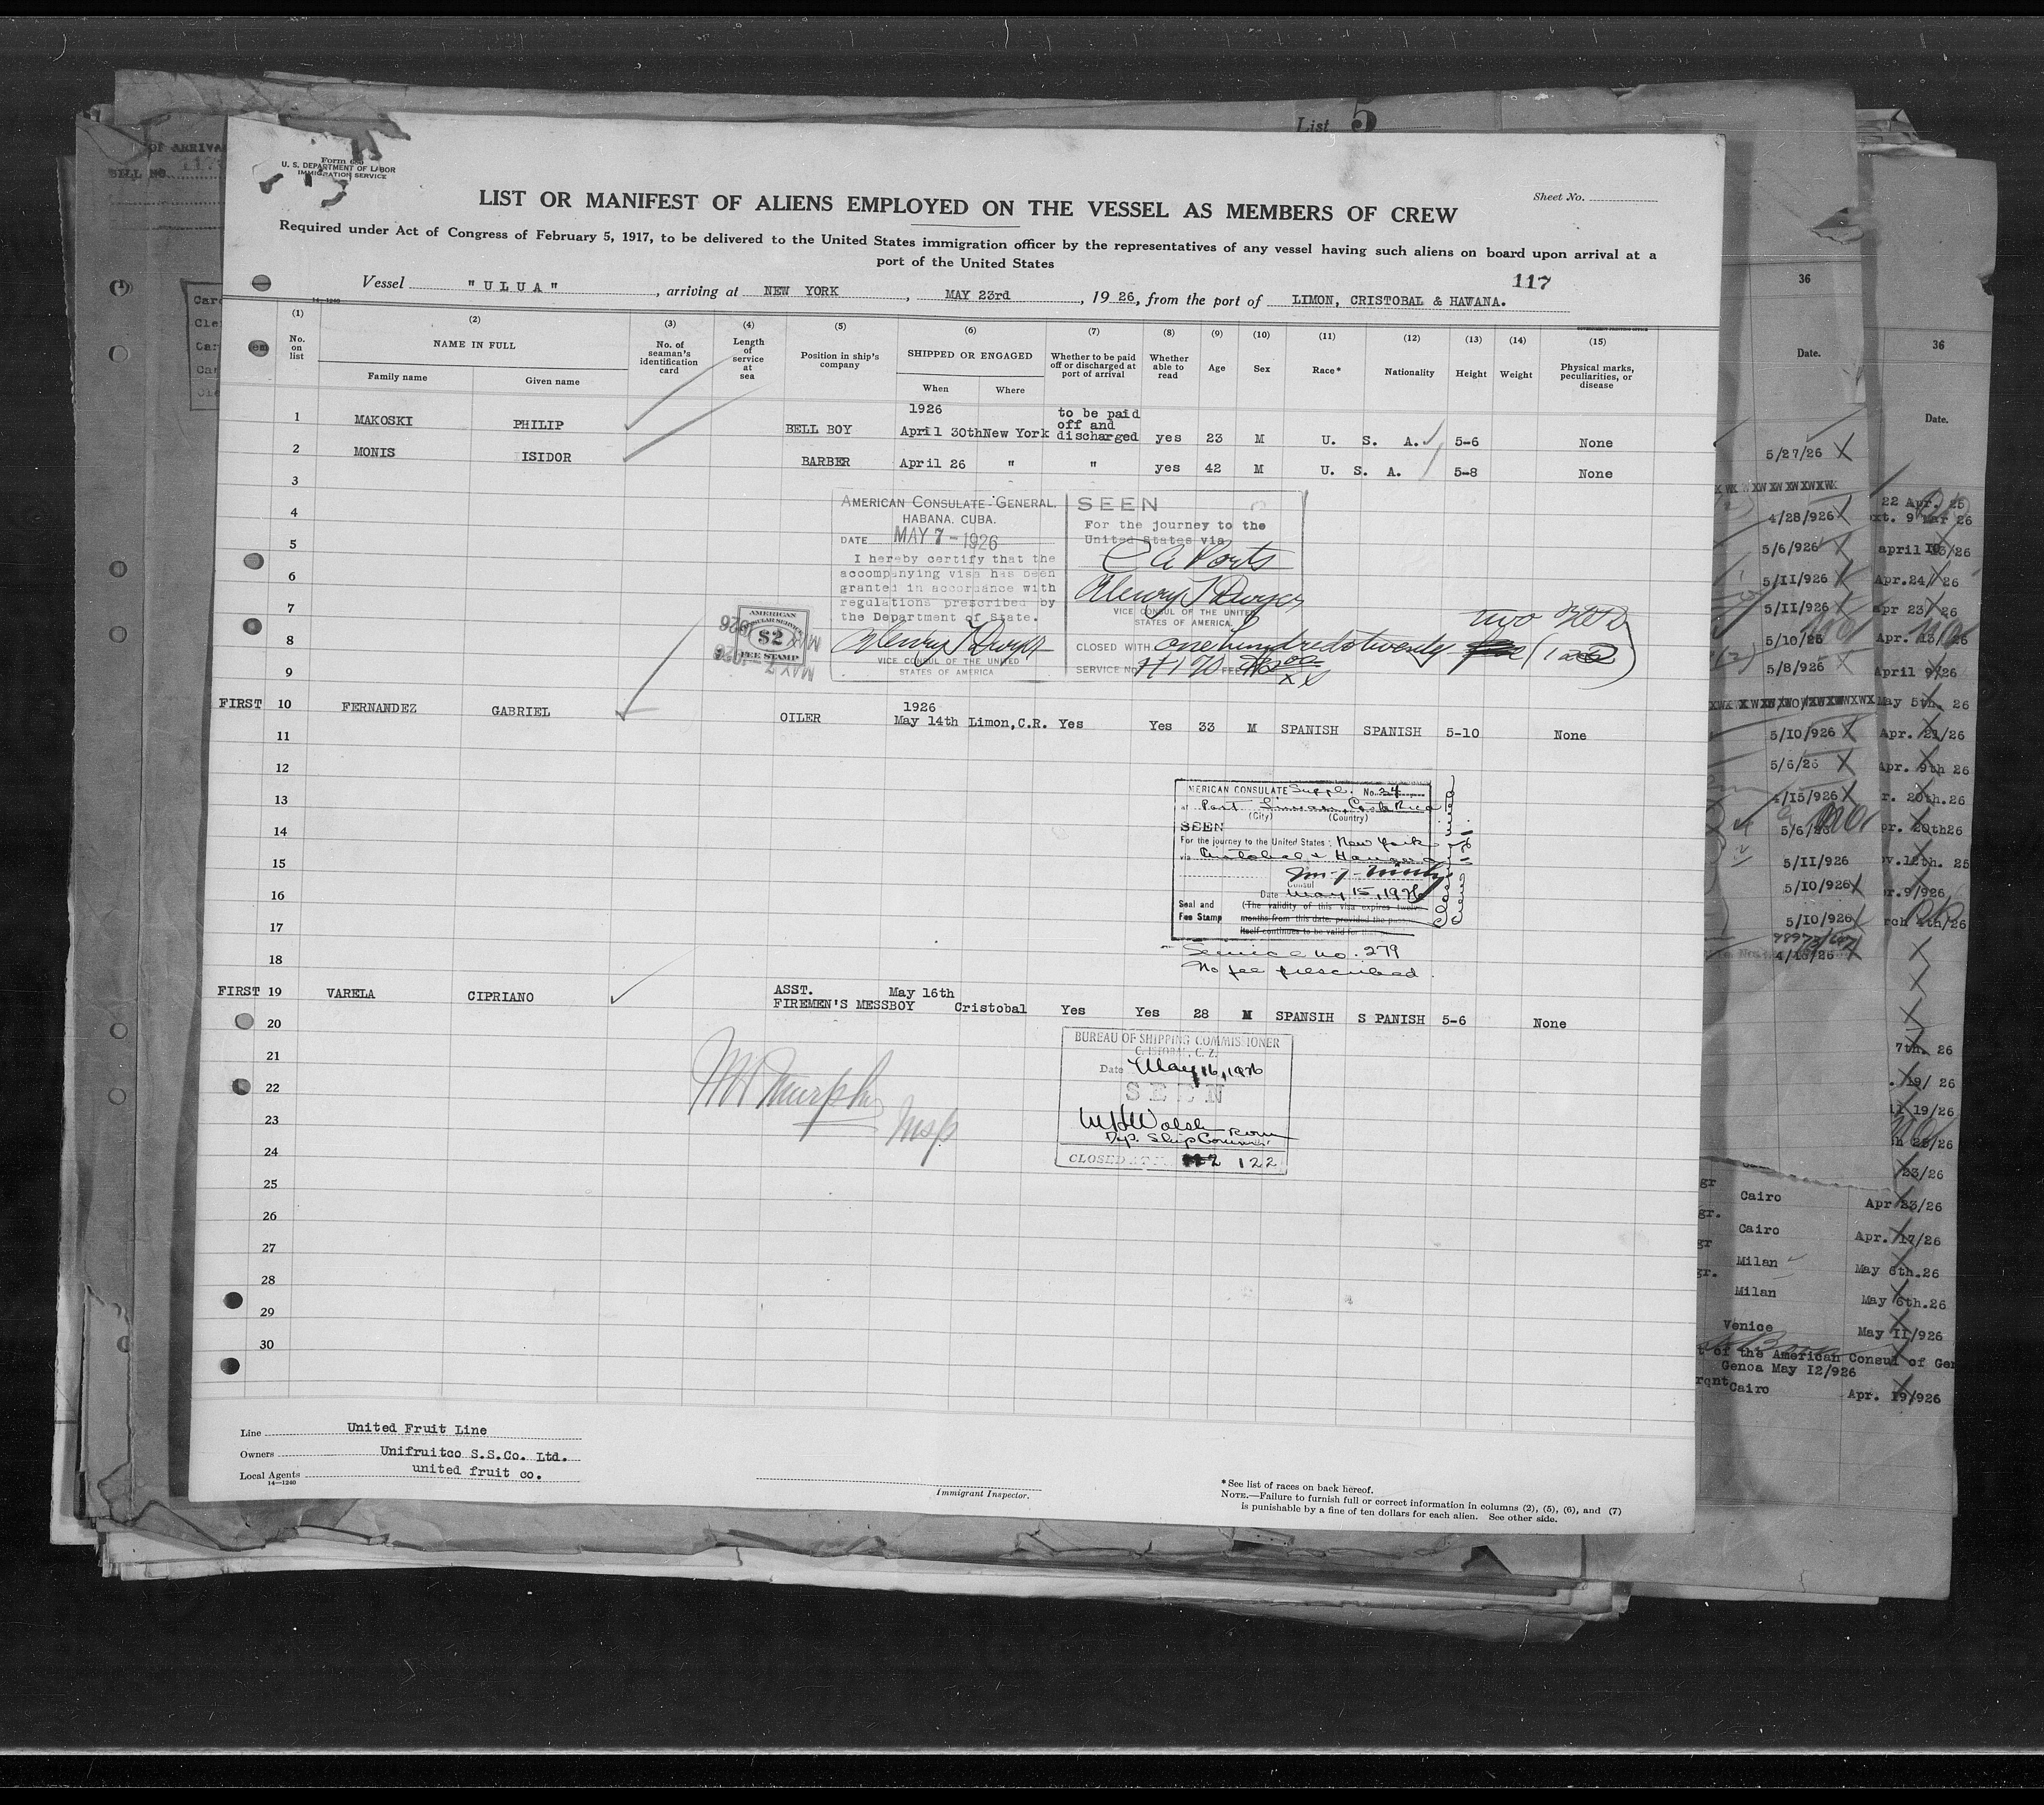 List 5
OF ARRIVA
BILL NO. 117
Form 680
U. S. DEPARTMENT OF LABOR
IMMIGRATION SERVICE
Sheet No.
LIST OR MANIFEST OF ALIENS EMPLOYED ON THE VESSEL AS MEMBERS OF CREW
Required under Act of Congress of February 5, 1917, to be delivered to the United States immigration officer by the representatives of any vessel having such aliens on board upon arrival at a
port of the United States
117
Vessel "ULUA", arriving at NEW YORK, MAY 23rd, 1926, from the port of LIMON, CRISTOBAL & HAVANA.
14—1240
GOVERNMENT PRINTING OFFICE
(1) (2) (3) (4) (5) (6) (7) (8) (9) (10) (11) (12) (13) (14) (15)
No. on list
NAME IN FULL
Family name Given name
No. of seaman's identification card
Length of service at sea
Position in ship's company
SHIPPED OR ENGAGED
When Where
Whether to be paid off or discharged at port of arrival
Whether able to read
Age
Sex
Race*
Nationality
Height
Weight
Physical marks, peculiarities, or disease
1 MAKOSKI PHILIP BELL BOY 1926 April 30th New York to be paid off and discharged yes 23 M U. S. A. 5-6 None
2 MONIS ISIDOR BARBER April 26 " " yes 42 M U. S. A. 5-8 None
3
4
5
6
7
8
9
AMERICAN CONSULATE-GENERAL.
HABANA, CUBA.
DATE MAY 7-1926
I hereby certify that the
accompanying visa has been
granted in accordance with
regulations prescribed by
the Department of State.
Henry T Dwyer
VICE CONSUL OF THE UNITED
STATES OF AMERICA
AMERICAN
CONSULAR SERVICE
$2
FEE STAMP
MAY 7-1926
SEEN
For the journey to the
United States via
C A Ports
Henry T Dwyer
VICE CONSUL OF THE UNITED
STATES OF AMERICA.
CLOSED WITH one hundred twenty two
SERVICE No. FEE
FIRST 10 FERNANDEZ GABRIEL OILER 1926 May 14th Limon,C.R. Yes Yes 33 M SPANISH SPANISH 5-10 None
11
12
13
14
15
16
17
18
MERICAN CONSULATE Suppl. No. 34
at Port Limon, Costa Rica
(City) (Country)
SEEN
For the journey to the United States: New York
via Cristobal & Havana
Consul
Date May 15, 1926
Seal and
Fee Stamp
(The validity of this visa expires twelve
months from this date, provided the
itself continues to be valid for that
Service No. 279
No fee prescribed.
FIRST 19 VARELA CIPRIANO ASST. FIREMEN'S MESSBOY May 16th Cristobal Yes Yes 28 M SPANSIH S PANISH 5-6 None
20
21
22
23
24
25
26
27
28
29
30
BUREAU OF SHIPPING COMMISSIONER
CRISTOBAL, C. Z.
Date May 16, 1926
SEEN
W H Walsh
Dep. Ship Commr
CLOSED 122
W H Murphy
Insp
Line United Fruit Line
Owners Unifruitco S.S.Co. Ltd.
Local Agents united fruit co.
14—1240
Immigrant Inspector.
*See list of races on back hereof.
NOTE.—Failure to furnish full or correct information in columns (2), (5), (6), and (7)
is punishable by a fine of ten dollars for each alien. See other side.
36
Date.
5/27/26
4/28/926
5/6/926
5/11/926
5/11/926
5/10/26
5/8/926
5/10/926
5/6/26
4/15/926
5/6/26
5/11/926
5/10/926
5/10/926
4/16/26
Cairo
Cairo
Milan
Milan
Venice
t of the American Consul of Gen
Genoa May 12/926
Cairo
36
Date.
22 Apr. 25
xt. 9 Mar 26
Apr.24/26
Apr 23/26
Apr. 13/26
April 9/26
May 5th. 26
Apr. 21/26
Apr. 9th 26
r. 20th.26
pr. 20th26
ov.12th. 25
pr. 9/926
rch 4th/26
7th. 26
. 19/ 26
il 19/26
23/26
Apr 23/26
Apr. 17/26
May 6th.26
May 6th.26
May 11/926
Apr. 19/926